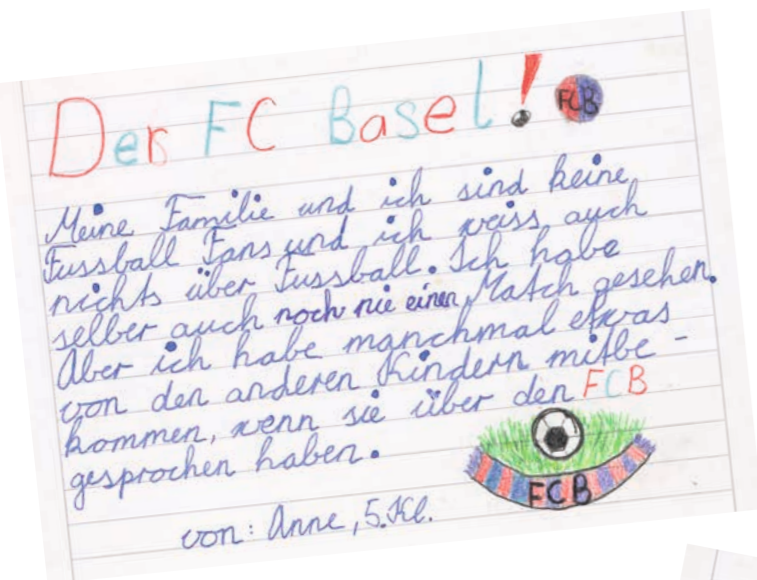 Der FC Basel! FCB
Meine Familie und ich sind keine
Fussball Fans und ich weiss auch
nichts über Fussball. Ich habe
selber auch noch nie einen Match gesehen.
Aber ich habe manchmal etwas
von den anderen Kindern mitbe-
kommen, wenn sie über den FCB
gesprochen haben.
FCB
von: Anne, 5.Kl.